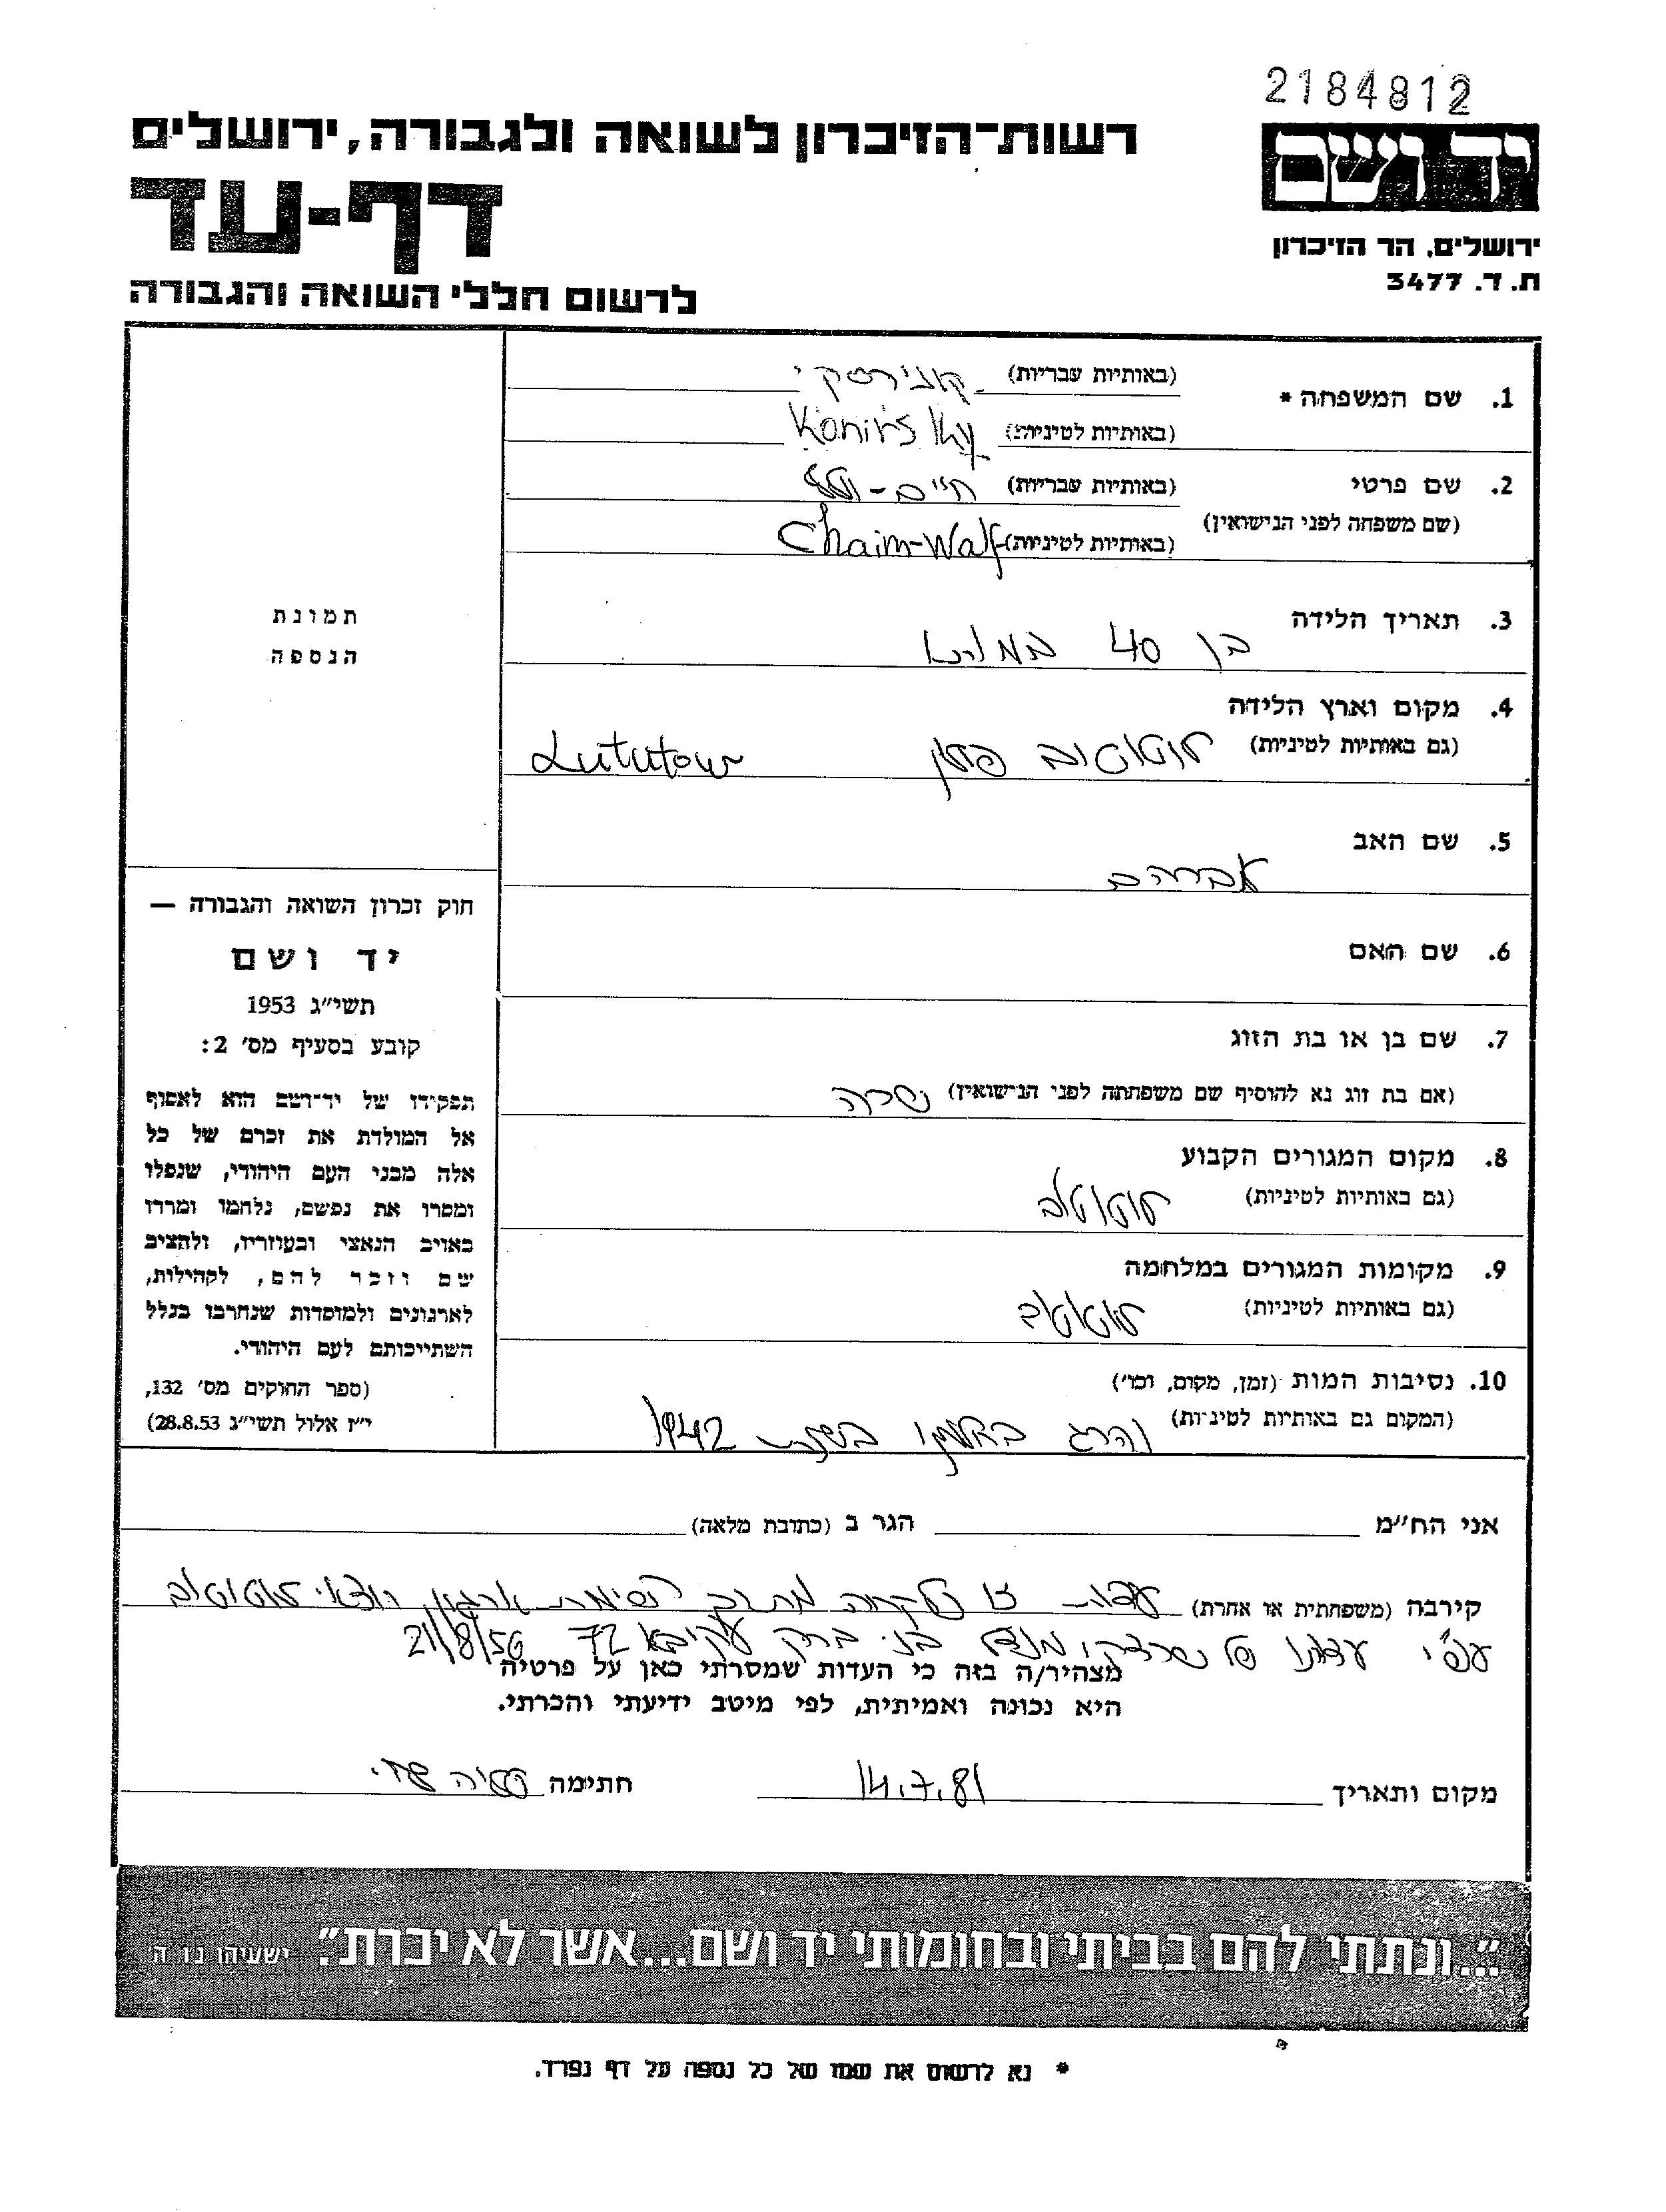 2184812
יד ושם
ירושלים, הר הזיכרון
ת. ד. 3477
רשות־הזיכרון לשואה ולגבורה, ירושלים
דף-עד
לרשום חללי השואה והגבורה
1. שם המשפחה *
(באותיות עבריות) קונירסקי
(באותיות לטיניות) Konirsky
2. שם פרטי
(שם משפחה לפני הנישואין)
(באותיות עבריות) חיים-
(באותיות לטיניות) Chaim-Walf
3. תאריך הלידה
בן 40 במותו
4. מקום וארץ הלידה
(גם באותיות לטיניות) לוטוטוב פולין Lututow
5. שם האב
אברהם
6. שם האם
7. שם בן או בת הזוג
(אם בת זוג נא להוסיף שם משפחתה לפני הנישואין) שרה
8. מקום המגורים הקבוע
(גם באותיות לטיניות) לוטוטוב
9. מקומות המגורים במלחמה
(גם באותיות לטיניות) לוטוטוב
10. נסיבות המות (זמן, מקום, וכו')
(המקום גם באותיות לטיניות) נהרג בחלמנו בשנת 1942
תמונת
הנספה
חוק זכרון השואה והגבורה —
יד ושם
תשי"ג 1953
קובע בסעיף מס' 2:
תפקידו של יד־ושם הוא לאסוף
אל המולדת את זכרם של כל
אלה מבני העם היהודי, שנפלו
ומסרו את נפשם, נלחמו ומרדו
באויב הנאצי ובעוזריו, ולהציב
שם וזכר להם, לקהילות,
לארגונים ולמוסדות שנחרבו בגלל
השתייכותם לעם היהודי.
(ספר החוקים מס' 132,
י"ז אלול תשי"ג 28.8.53)
אני הח"מ הגר ב (כתובת מלאה)
קירבה (משפחתית או אחרת) עדות זו נלקחה מתוך רשימת ארגון יוצאי לוטוטוב
עפ"י עדותו של בני ברק עקיבא 72 21/8/56
מצהיר/ה בזה כי העדות שמסרתי כאן על פרטיה
היא נכונה ואמיתית, לפי מיטב ידיעתי והכרתי.
מקום ותאריך 14.7.81 חתימה
"...ונתתי להם בביתי ובחומותי יד ושם...אשר לא יכרת". ישעיהו נו, ה'
* נא לרשום את שמו של כל נספה על דף נפרד.